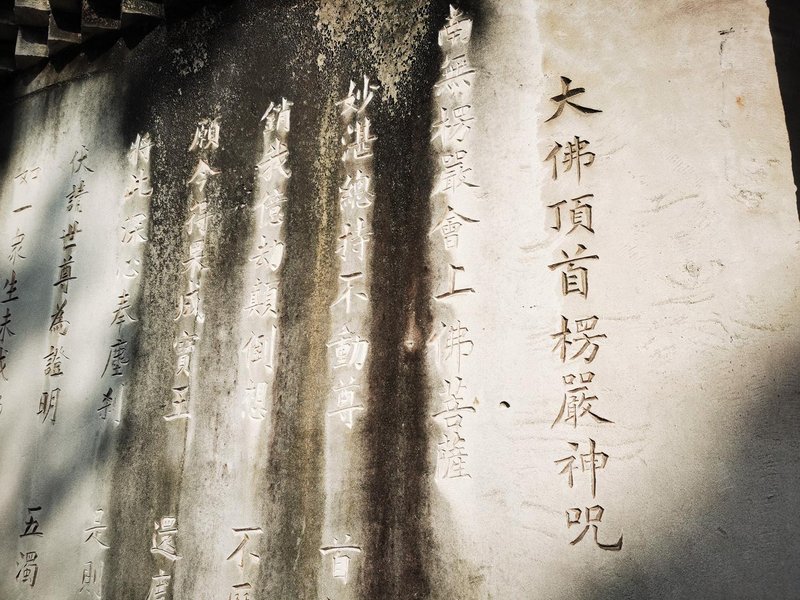 大佛頂首楞嚴神咒
南無楞嚴會上佛菩薩
妙湛總持不動尊 首
銷我億劫顛倒想 不
願今得果成寶王 還度
將此深心奉塵剎 是則
伏請世尊為證明 五濁
如一眾生未成